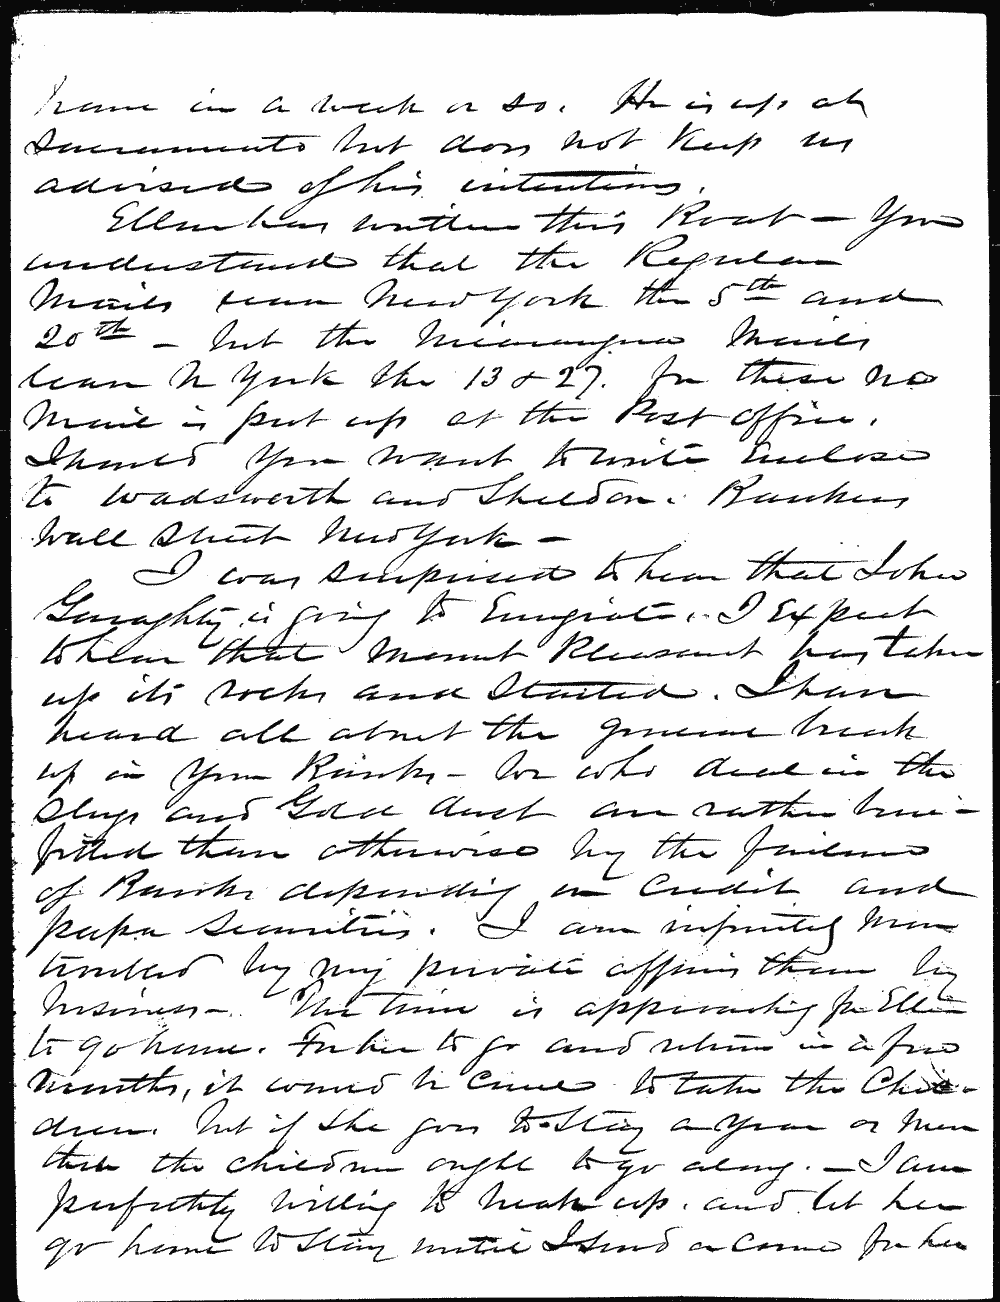 home in a week or so. He is up at
Sacramento but does not keep us
advised of his intentions.
Ellen has written this Boat — You
understand that the Regular
Mails leave New York the 5th and
20th — but the Nicaragua Mails
leave N York the 13 & 27. for these no
Mail is put up at the Post office.
Should you want to write Enclose
to Wadsworth and Sheldon. Bankers
Wall Street New York —
I was surprised to hear that John
Geraghty is going to Emigrate. I Expect
to hear that Mount Pleasant has taken
up its rocks and Started. I have
heard all about the general break
up in your Banks — we who deal in the
Slugs and Gold dust are rather bene-
fitted than otherwise by the failure
of Banks depending on Credit and
paper Securities. I am infinitely More
troubled by my private affairs than by
business —. The time is approaching for Ellen
to go home. For her to go and return in a few
Months, it would be cruel to take the Chil-
dren. but if She goes to Stay a year or More
then the children ought to go along. — I am
perfectly willing to break up. and let her
go home to Stay until I send or come for her